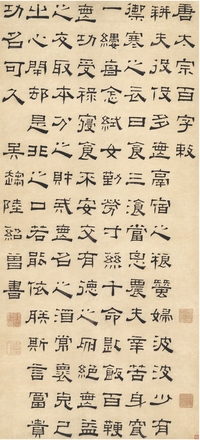 唐太宗百字敕
耕夫役役多無鬲宿之粮蠶婦波波少有
禦寒之衣日食三湌當思農夫辛苦身穿
一縷每念絍女勤勞寸絲千命匙飯百鞭
無功受祿寢食不安交有德之朋絕無益
之友取本分之財戒無名之酒常褱克己
之心閉却是非之口若能依朕斯言富貴
功名可久 吳趨陸紹曾書